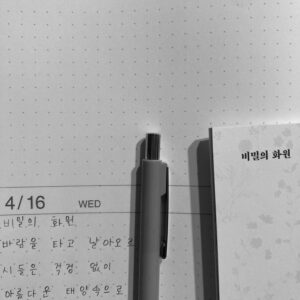 4/16 WED
비밀의 화원
바람을 타고 날아오르
시들은 걱정 없이
아름다운 태양속으로
비밀의 화원